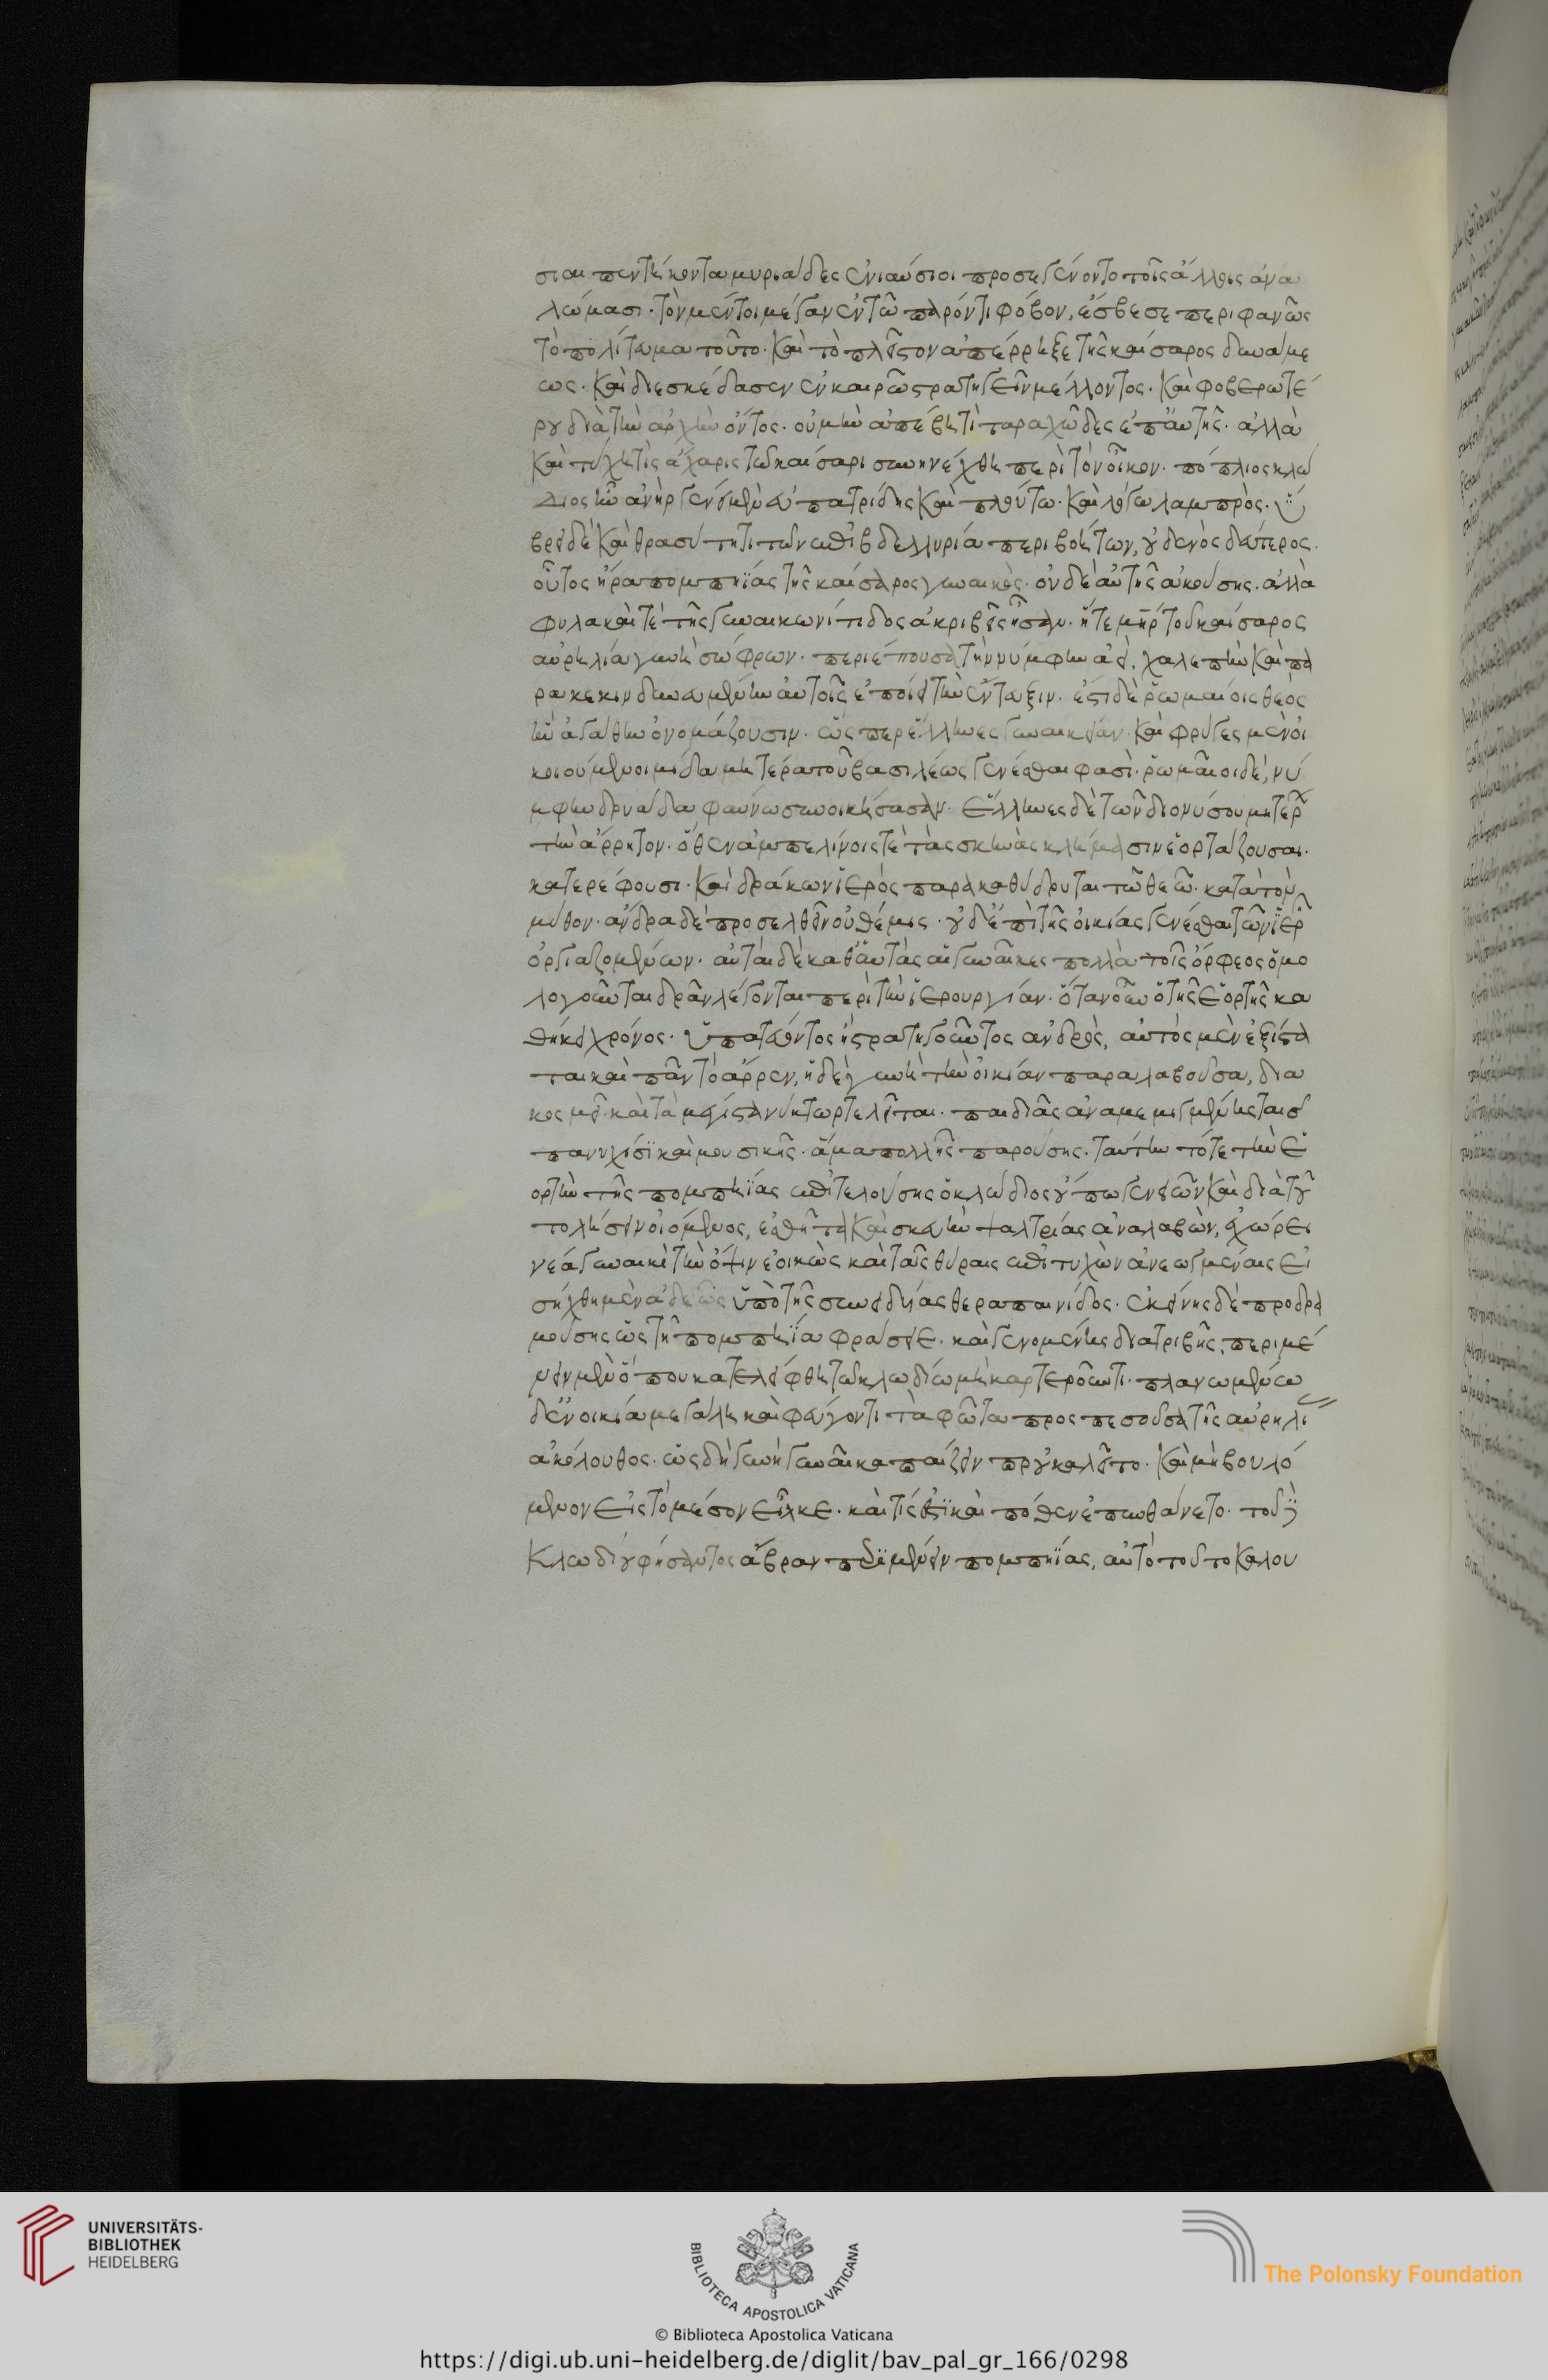 σιαι πεντήκοντα μυριάδες ἐνιαύσιοι προσεγένοντο τοῖς ἄλλοις ἀνα
λώμασι. τὸν μέντοι μέγαν ἐν τῶ παρόντι φόβον, ἔσβεσε περιφανῶς
τὸ πολίτευμα τοῦτο. καὶ τὸ πλεῖστον ἀπέρρηξε τῆς καίσαρος δυνάμε
ως. καὶ διεσκέδασεν ἐν καιρῶ στρατηγεῖν μέλλοντος. καὶ φοβερωτέ
ρου διὰ τὴν ἀρχὴν ὄντος. οὐ μὴν ἀπέβη τὶ ταραχῶδες ἐπ᾽ αὐτῆς. ἀλλὰ
καὶ τύχη τὶς ἄχαρις τῶ καίσαρι συνηνέχθη περὶ τὸν οἶκον. πόπλιος κλώ
διος ἦν ἀνὴρ γένει μὲν εὐπατρίδης καὶ πλούτω. καὶ λόγω λαμπρὸς. ὕ
βρει δὲ καὶ θρασύτητι τῶν ἐπὶ βδελλυρία περιβοήτων, οὐδενὸς δεύτερος.
οὗτος ἤρα πομπηΐας τῆς καίσαρος γυναικὸς. οὐδὲ αὐτῆς ἀκούσης. ἀλλὰ
φυλακαὶ τὲ τῆς γυναικωνίτιδος ἀκριβεῖς ἦσαν. ἥτε μηρ τοῦ καίσαρος
αὐρηλία γυνὴ σώφρων. περιέπουσα τὴν νύμφην ἀεὶ, χαλεπὴν καὶ πα
ρακεκινδυνευμένην αὐτοῖς ἐποίει τὴν ἔντευξιν. ἔστι δὲ ῥωμαίοις θεὸς
ἣν ἀγαθὴν ὀνομάζουσιν. ὥσπερ ἕλληνες γυναικείαν. καὶ φρύγες μὲν οἰ
κειούμενοι μίδα μητέρα τοῦ βασιλέως γενέσθαι φασὶ. ῥωμαῖοι δὲ, νύ
μφην δρυάδα φαύνω συνοικήσασαν. ἕλληνες δὲ τῶν διονύσου μητέρ
τὴν ἄρρητον. ὅθεν ἀμπελίνοις τὲ τὰς σκηνὰς κλήμασιν ἑορτάζουσαι.
κατερέφουσι. καὶ δράκων ἱερὸς παρακαθίδρυται τῶ θεῶ. κατὰ τὸν
μῦθον. ἄνδρα δὲ προσελθεῖν οὐ θέμις. οὐδ᾽ ἐπὶ τῆς οἰκίας γενέσθαι τῶν ἱερ
ὀργιαζομένων. αὐταὶ δὲ καθ᾽ αὑτὰς αἱ γυναῖκες πολλὰ τοῖς ὀρφεος ὁμο
λογοῦντα δρᾶν λέγονται περὶ τὴν ἱερουργίαν. ὅταν οὖν ὁ τῆς ἑορτῆς κα
θήκει χρόνος. ὑπατεύοντος ἢ στρατηγοῦντος ἀνδρὸς, αὐτὸς μὲν ἐξίστα
ται καὶ πᾶν τὸ ἄρρεν, ἡ δὲ γυνὴ τὴν οἰκίαν παραλαβοῦσα, δια
κοσμεῖ. καὶ τὰ μέγιστα νύκτωρ τελεῖται. παιδιᾶς ἀναμεμιγμένης ταισ
παννυχίσι καὶ μουσικῆς. ἅμα πολλῆς παρούσης. ταύτην τότε τὴν ἑ
ορτὴν τῆς πομπηίας ἐπιτελούσης ὁ κλώδιος οὔπω γενειῶν καὶ διὰ τοῦ
το λήσειν οἰόμενος, ἐσθῆτα καὶ σκευὴν ψαλτρίας ἀναλαβὼν, ἐχώρει
νέα γυναικὶ τὴν ὄψιν ἐοικὼς καὶ ταῖς θύραις ἐπιτυχὼν ἀνεωγμέναις εἰ
σήχθη μὲν ἀδεῶς ὑπὸ τῆς συνειδυίας θεραπαινίδος. ἐκείνης δὲ προδρα
μούσης ὡς τῆ πομπηία φράσειε. καὶ γενομένης διατριβῆς, περιμέ
νειν μὲν ὅπου κατελείφθη τῶ κλωδίω μὴ καρτεροῦντι. πλανωμένω
δ᾽ ἐν οἰκία μεγάλη καὶ φεύγοντι τὰ φῶτα προςπεσοῦσα τῆς αὐρηλι
ἀκόλουθος. ὡς δὴ γυνὴ γυναῖκα παίζειν προυκαλεῖτο. καὶ μὴ βουλό
μενον εἰς τὸ μέσον εἷλκε. καὶ τίς ἐστι καὶ πόθεν ἐπυνθάνετο. τοῦ δὲ
κλωδίου φήσαντος ἅβραν περιμένειν πομπηίας, αὐτὸ τοῦτο καλου
UNIVERSITÄTS-
BIBLIOTHEK
HEIDELBERG
BIBLIOTECA APOSTOLICA VATICANA
The Polonsky Foundation
© Biblioteca Apostolica Vaticana
https://digi.ub.uni-heidelberg.de/diglit/bav_pal_gr_166/0298